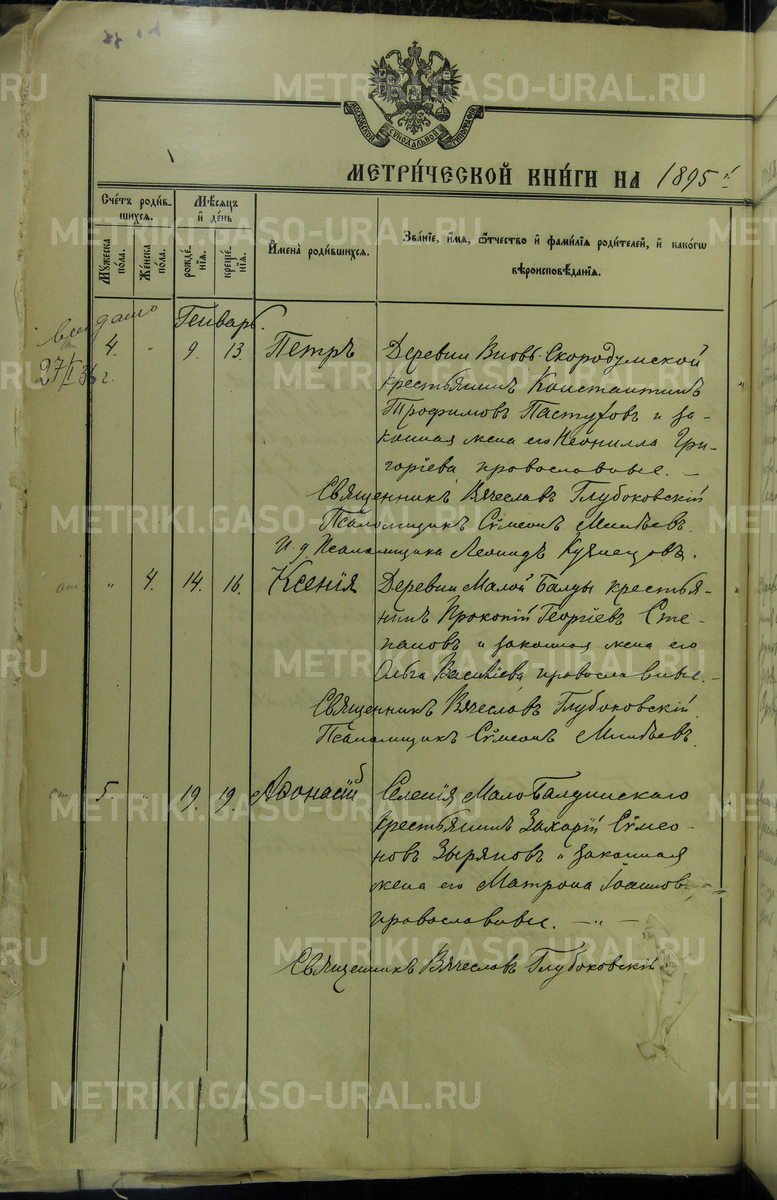 МЕТРИ́ЧЕСКОЙ КНИ́ГИ НА 1895 й
Сче́тъ роди́в-
шихся.
Мѣ́сяцъ
и́ де́нь
Му́жеска
по́ла.
Же́нска
по́ла.
рожде́-
нія.
креще́-
нія.
И҆мена̀ роди́вшихся.
Зва́ніе, и́мя, ѻ҆́тчество и҆ фами́лія роди́телей, и҆ како́гѡ
вѣроисповѣ́данія.
выдано
27/I 36 г.
Генварь.
4. „ 9. 13. Петръ Деревни Вновь-Скородумской
крестьянинъ Константинъ
Трофимовъ Пастуховъ и за-
конная жена его Неонилла Гри-
горіева православные. —
Священникъ Вячеславъ Глубоковскій
Псаломщикъ Сѵмеонъ
И. д. Псаломщика Леонидъ Кузнецовъ.
от „ 4. 14. 16. Ксенія Деревни Малой Балды крестья-
нинъ Прокопій Георгіевъ Сте-
пановъ и законная жена его
Ольга Василіева православные. —
Священникъ Вячеславъ Глубоковскій
Псаломщикъ Сѵмеонъ
от 5. „ 19. 19. Аѳонасій Селенія МалоБалдинскаго
крестьянинъ Захарій Сѵмео-
новъ Зыряновъ и законная
жена его Матрона Іоаннова
православные. — „ —
Священникъ Вячеславъ Глубоковскій
METRIKI.GASO-URAL.RU